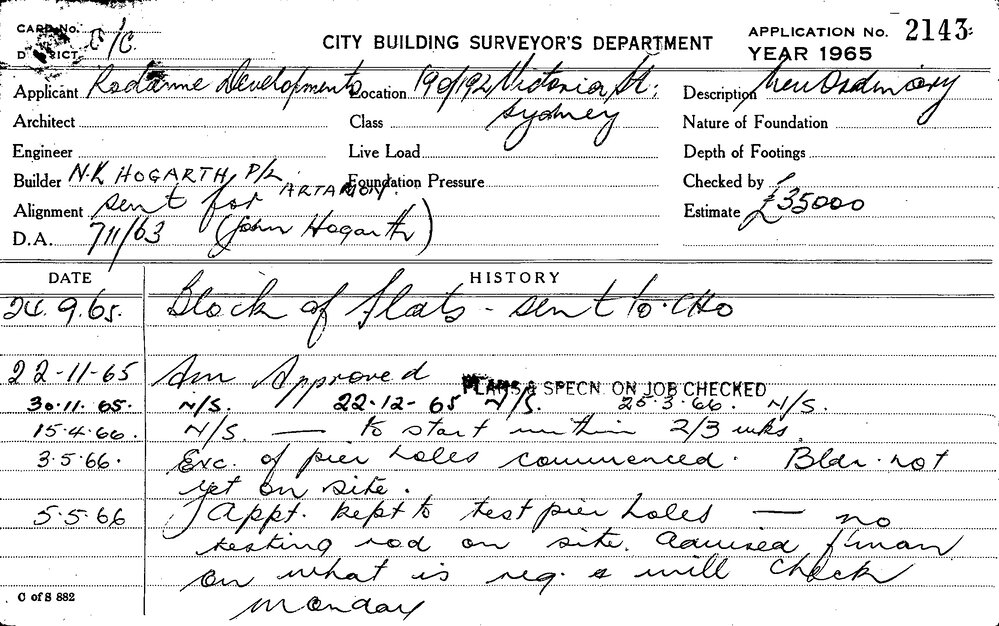 CARD No.
DISTRICT E/C.
CITY BUILDING SURVEYOR'S DEPARTMENT
APPLICATION No. 2143
YEAR 1965
Applicant Rodanne Developments Location 190/192 Victoria St; Description New Ordinary
Architect Class Sydney Nature of Foundation
Engineer Live Load Depth of Footings
Builder N.K HOGARTH P/L ARTARMON. Foundation Pressure Checked by
Alignment sent for Estimate £35000
D.A. 711/63 (John Hogarth)
DATE HISTORY
24.9.65. Block of Flats - sent to CHO
22-11-65 Am Approved
PLANS & SPECN. ON JOB CHECKED
30.11.65. N/S. 22-12-65 N/S. 25.3.66. N/S.
15.4.66. N/S. — to start within 2/3 wks.
3.5.66. Exc. of pier holes commenced. Bldr. not
yet on site.
5.5.66 Appt. kept to test pier holes — no
testing rod on site. Advised f'man
on what is req. & will check
Monday
C of S 882